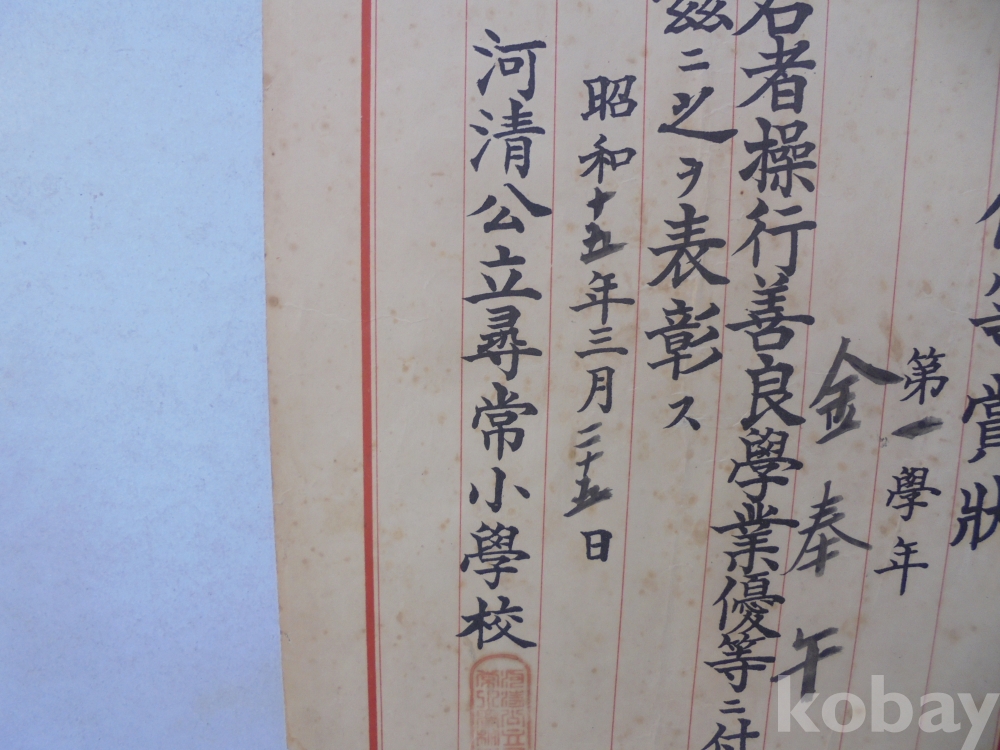 賞狀
第一學年
金奉午
者操行善良學業優等ニ付
茲ニ之ヲ表彰ス
昭和十五年三月二十五日
河清公立尋常小學校
kobay